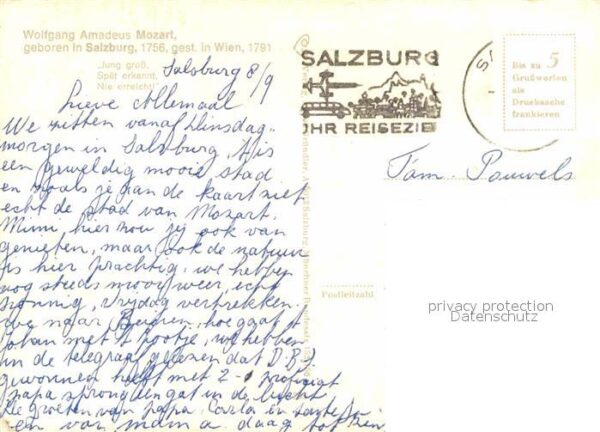 Wolfgang Amadeus Mozart,
geboren in Salzburg, 1756, gest. in Wien, 1791
Jung groß,
Spät erkannt,
Nie erreicht!
Salsburg 8/9
Lieve Allemaal
We zitten vanaf Dinsdag-
morgen in Salsburg, 't is
een geweldig mooie stad
en zoals je aan de kaart ziet
echt de stad van Mozart.
Mimi, hier zou jij ook van
genieten, maar ook de natuur
is hier prachtig, we hebben
nog steeds mooi weer, echt
zonnig, vrijdag vertrekken
we naar Beieren, hoe gaat 't
Johan met 't pootje, we hebben
in de telegraaf gelezen dat
gewonnen heeft met 2-0 proficiat
papa sprong een gat in de lucht
de groeten van papa Carla en tante
en van mama. daag tot
SALZBURG
IHR REISEZIEL
Bis zu 5
Grußworten
als
Drucksache
frankieren
Fam. Pauwels
Postleitzahl
privacy protection
Datenschutz